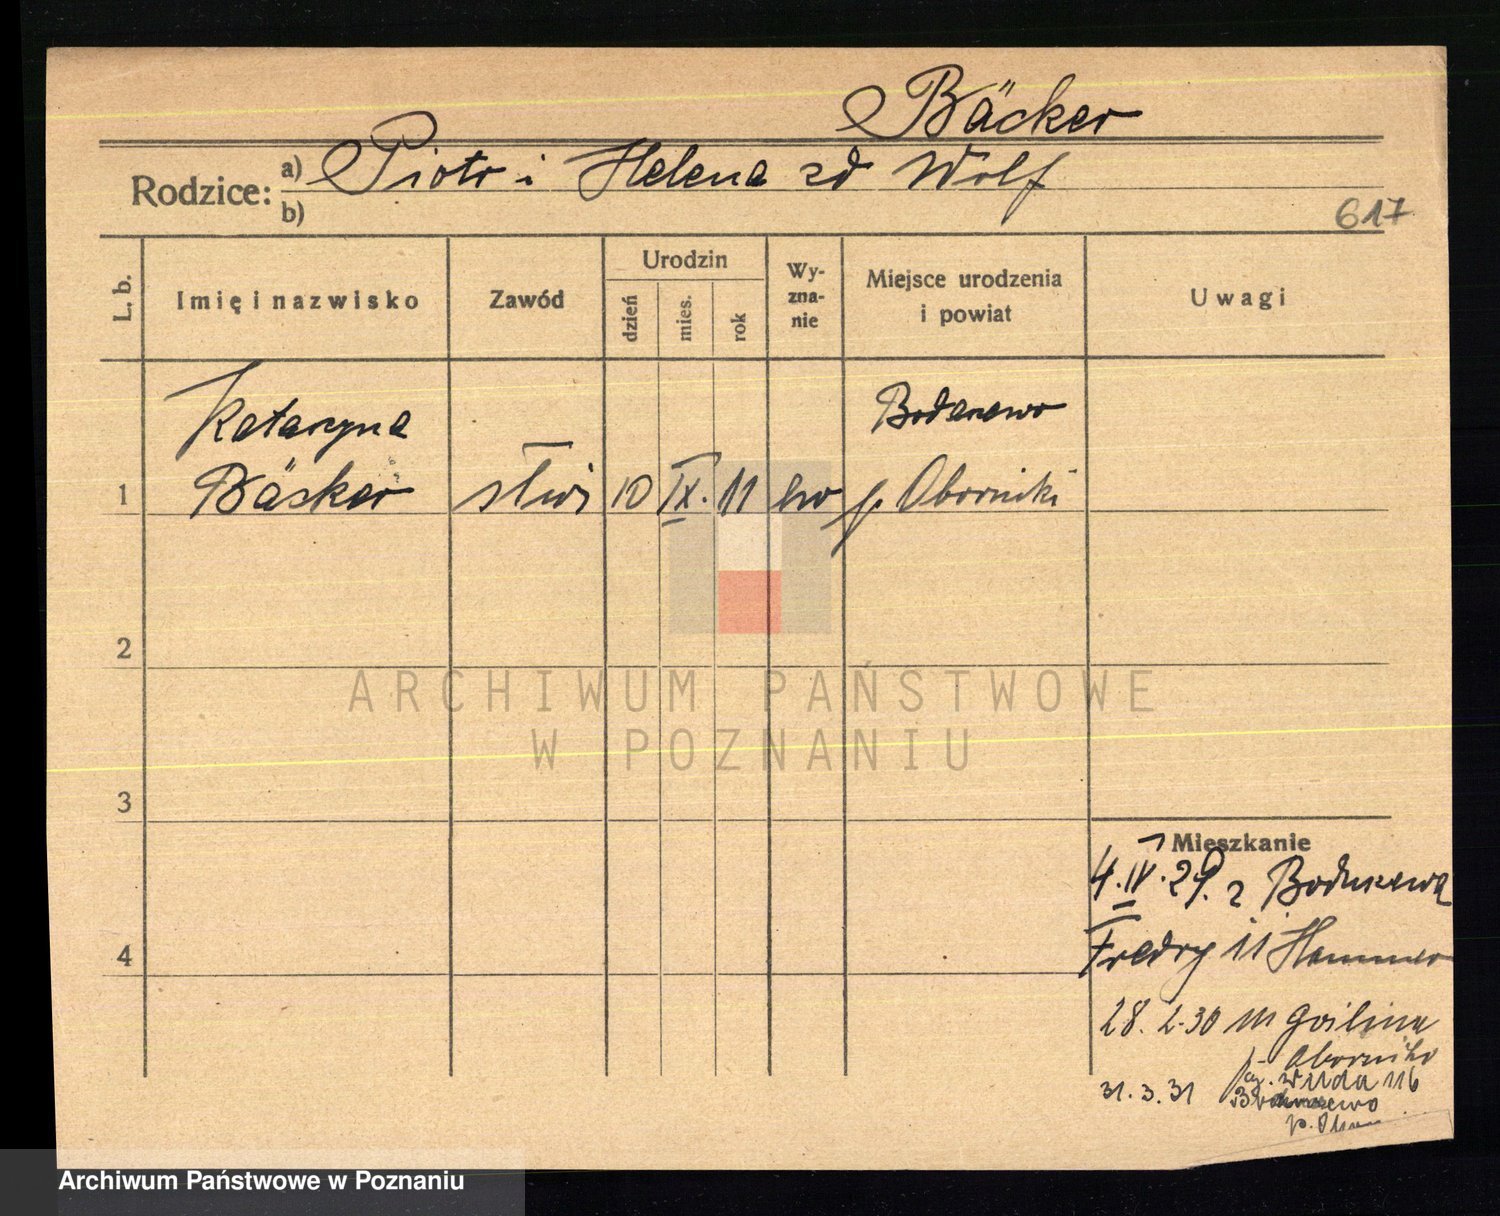 Bäcker
Rodzice: a) Piotr i Helena zd Wolf
b)
617
L. b.
Imię i nazwisko
Zawód
Urodzin
dzień
mies.
rok
Wy-
zna-
nie
Miejsce urodzenia
i powiat
Uwagi
Katarzyna Boduszewo
1 Bäcker służ 10 IX. 11 ew p. Oborniki
2
ARCHIWUM PAŃSTWOWE
W POZNANIU
3
Mieszkanie
4. IV. 29. z Boduszewa
4 Fredry 11 Hammer
28. 2. 30 m Goślina
Oborniki
31. 3. 31 Wilda 116
Boduszewo
p.
Archiwum Państwowe w Poznaniu